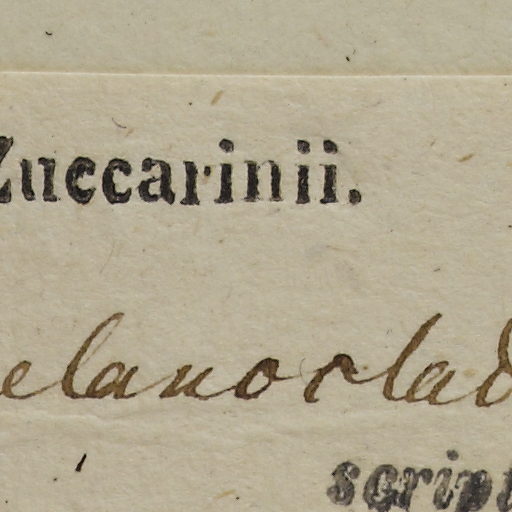 Zuccarinii.
elanoclad
script